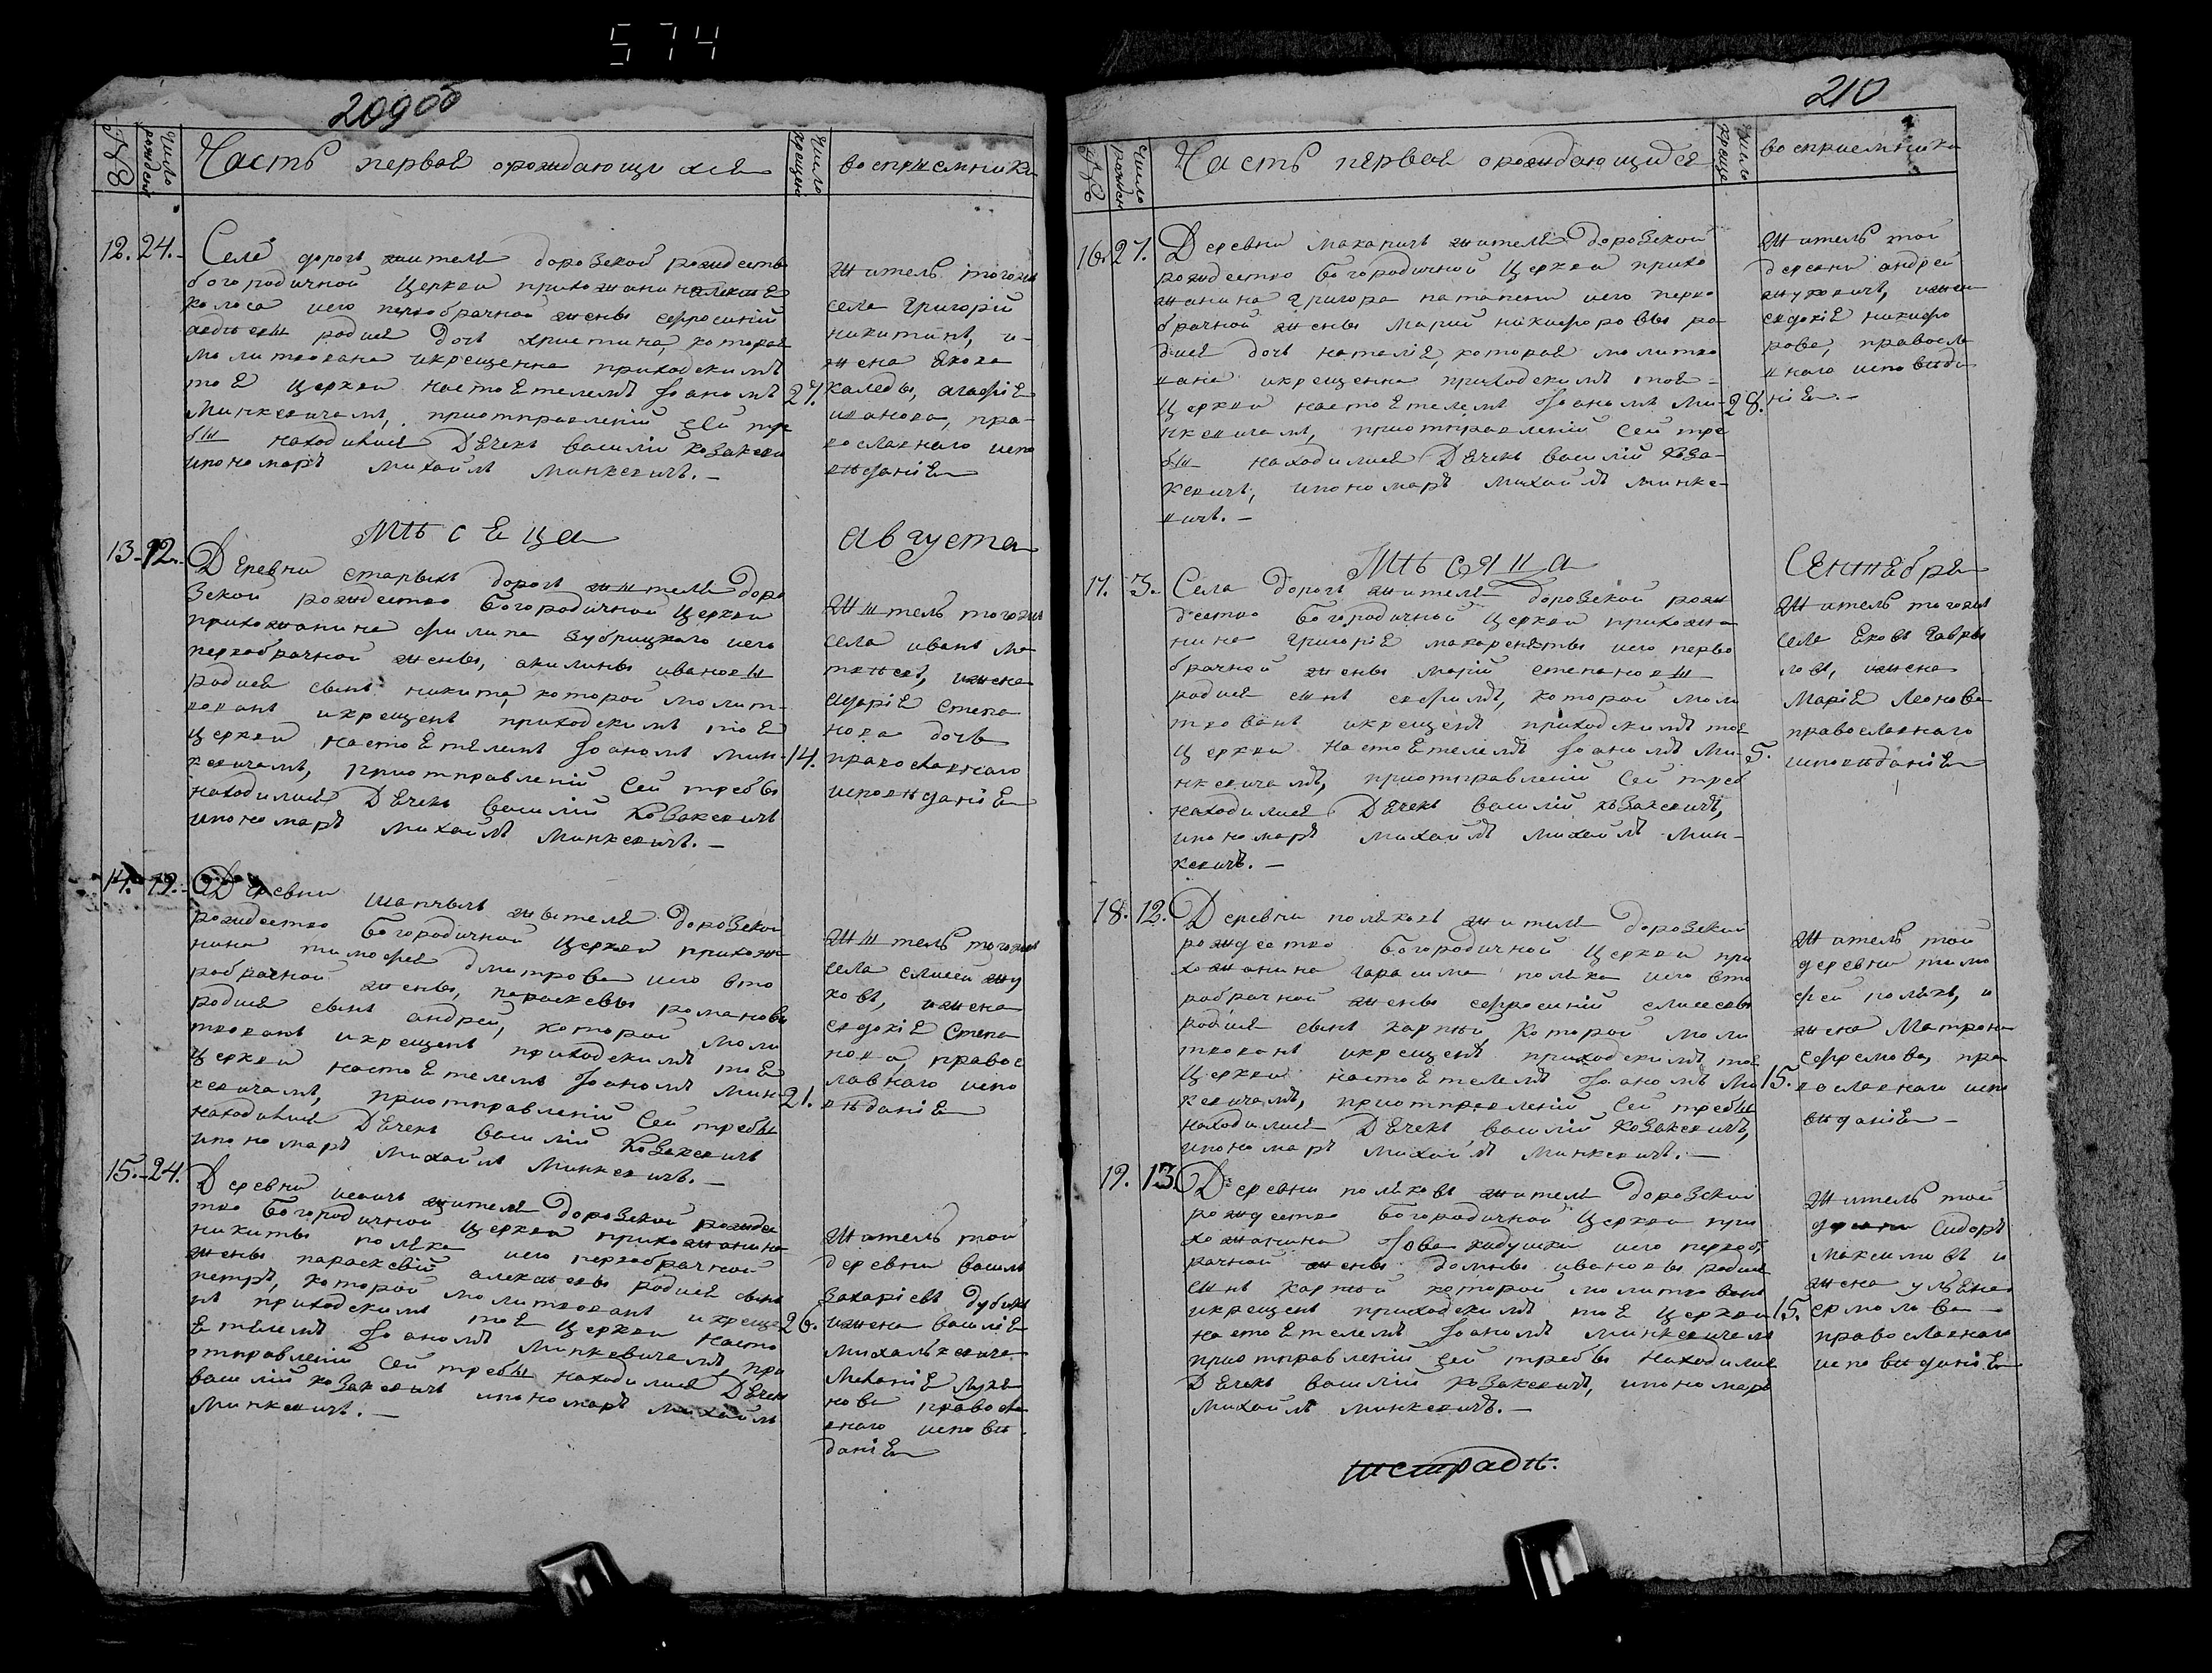 574
209об
№
Число рожден
Часть первая орождающихся
Число крещен
воспрiемники
12. 24. Села дорогъ жителя дорозской рождество
богородичной Церкви прихожанина
колоса иего первобрачной жены ефросинiй
родися дочь христина, которая
молитвована икрещенна приходскимъ
тоя Церкви настоятелемъ Iоаномъ 27.
Минкевичамъ, приотправленiй сей тре
бы находился Дячекъ василiй козакеви
ипономаръ михайлъ минкевичъ.
житель тогожъ
села Григорiй
никитинъ, и
жена якова
каледы, агафiя
иванова, пра-
вославнаго испо
веданiя
Мѣсяца Августа
13. 12. Деревни старыхъ дорогъ жителя доро
зской рождество богородичной Церкви
прихожанина филипа зубрицкаго иего
первобрачной жены, акилины ивановы
родися сынъ никита, которой молит-
вованъ икрещенъ приходскимъ тоя
Церкви настоятелимъ Iоаномъ мин- 14.
кевичамъ, приотправленiй сей требы
находился Дячекъ василiй Козакевичъ
ипономаръ михайлъ Минкевичъ.
Житель тогожъ
села иванъ ма
твѣевъ, ижена
Степа
нова дочь
православнаго
исповѣданiя
14. 19. Деревни шапчыцъ жителя Дорозской
рождество богородичной Церкви прихожа
нина тимофея дмитрова иего вто
робрачной жены, параскевы романовы
родися сынъ андрей, которой моли
твованъ икрещенъ приходскимъ тоя
Церкви настоятелемъ Iоаномъ мин- 21.
кевичамъ, приотправленiй Сей требы
находился Дячекъ василiй Козакевичъ
ипономаръ михайлъ Минкевичъ.
Житель тогожъ
села елисей жу
ковъ, ижена
евдокiя Степа
нова, правос
лавнаго испо
вѣданiя
15. 24. Деревни жителя Дорозской рождес
тво богородичной Церкви прихожанина
никиты поляка иего первобрачной
жены параскевiй алексѣевы родися сынъ
петръ, которой молитвованъ икреще
нъ приходскимъ тоя Церкви насто 26.
ятелемъ Iоаномъ Минкевичамъ, при
отправленiй Сей требы находился Дячекъ
василiй козакевичъ ипономаръ михайлъ
Минкевичъ.
Житель той
деревни василь
захарiевъ
ижена василiя
михалькевича
Меланiя лукья
нова правосла
внаго исповѣ
данiя
210
№
Число рожден
Часть первая орождающихся
Число креще
воспрiемники
16. 27. Деревни макаричъ жителя дорозской
рождество богородичной Церкви прихо
жанина Григора патапени иего перво
брачной жены марiй никифоровы ро
дися дочь наталiя, которая молитво
вана икрещенна приходскимъ тоя
Церкви настоятелемъ Iоаномъ Ми- 28.
нкевичамъ, приотправленiй Сей тре
бы находился Дячекъ василiй коза-
кевичъ, ипономаръ михайлъ минке-
вичъ.
Житель той
деревни андрей
жуковичъ, ижена
евдокiя никифо
рова, правосла
внаго исповѣда
нiя
Мѣсяца Сентября
17. 3. Села Дорогъ жителя дорозской рож
дество богородичной Церкви прихожа
нина Григорiя иего перво
брачной жены марiй степановы
родися сынъ ефимъ, которой моли
твованъ икрещенъ приходскимъ тоя
Церкви настоятелемъ Iоаномъ Ми- 5.
нкевичамъ, приотправленiй Сей треб
находился Дячекъ василiй козакевичъ,
ипономаръ михайлъ михайлъ мин-
кевичъ.
Житель тогожъ
села яковъ Гаври
ловъ, ижена
Марiя Леонова
православнаго
исповѣданiя
18. 12. Деревни поляковъ жителя дорозской
рождество богородичной Церкви при
хожанина гарасима поляка иего вто
робрачной жены ефросинiй елисеевы
родися сынъ карпъ которой моли
твованъ икрещенъ приходскимъ тоя
Церкви настоятелемъ Iоаномъ Мин 15.
кевичамъ, приотправленiй Сей требы
находился Дячекъ василiй Козакевичъ,
ипономаръ михайлъ Минкевичъ.
Житель той
деревни тимо
фей полякъ, и
жена Матрона
ефремова, пра
вославнаго испо
вѣданiя
19. 13. Деревни поляковъ жителя дорозской
рождество богородичной Церкви при
хожанина Iова хадушки иего первоб
рачной жены домны ивановы родися
сынъ карпъ которой молитвованъ
икрещенъ приходскимъ тоя Церкви 15.
настоятелемъ Iоаномъ минкевичемъ
приотправленiй сей требы находился
Дячекъ василiй козакевичъ, ипономаръ
михайлъ минкевичъ.
Житель той
деревни Сидоръ
максимовъ и
жена ульяна
ермолова
православнаго
исповѣданiя